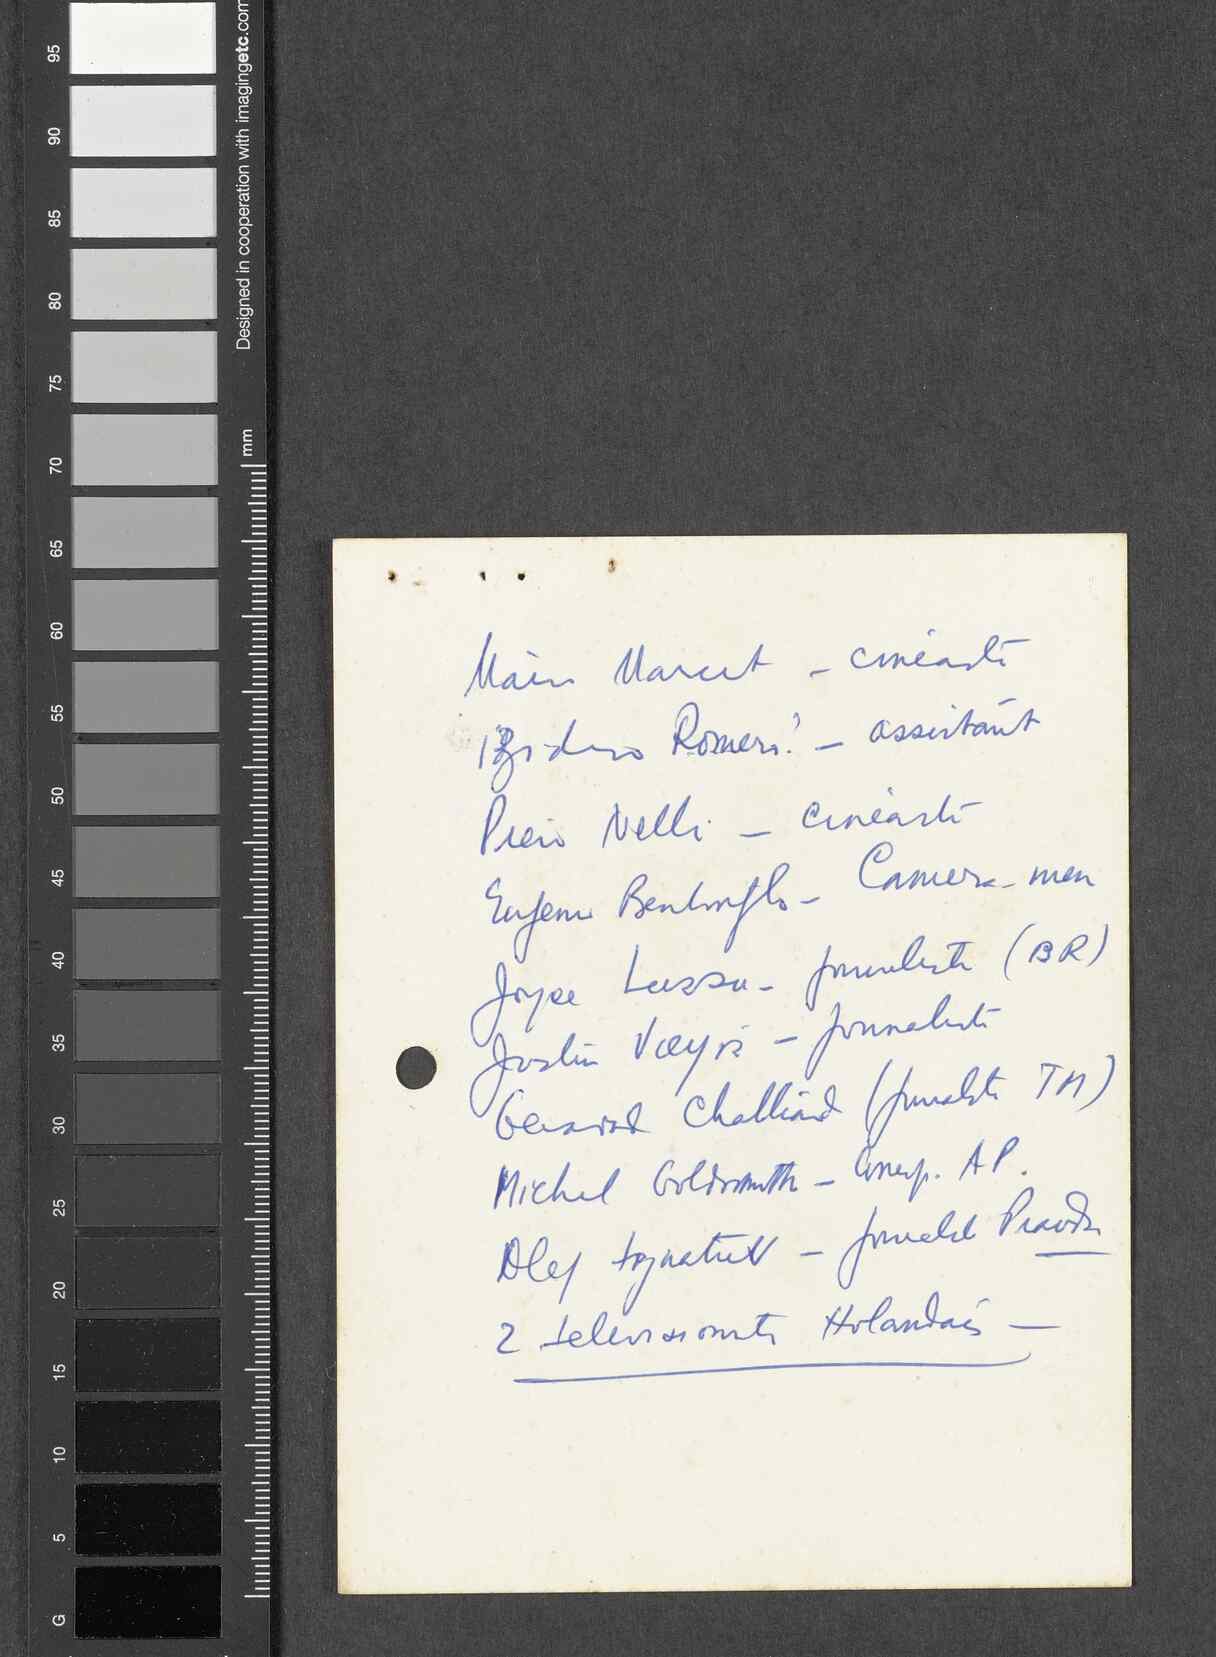 95
90
85
80
75
70
65
60
55
50
45
40
35
30
25
20
15
10
5
G
Designed in cooperation with imagingetc.com
mm
Mário Marret - cinéaste
Izidro Romero - assistant
Piero Nelli - cinéaste
Eugenio Bentivoglio - Camera-men
Joyce Lussu - journaliste (BR)
Justin - journaliste
Gerard Challiand (journaliste TM)
Michel Goldsmith - Corresp. AP.
Oleg Ignatiev - journalist Pravda
2 televisionists Holandais -